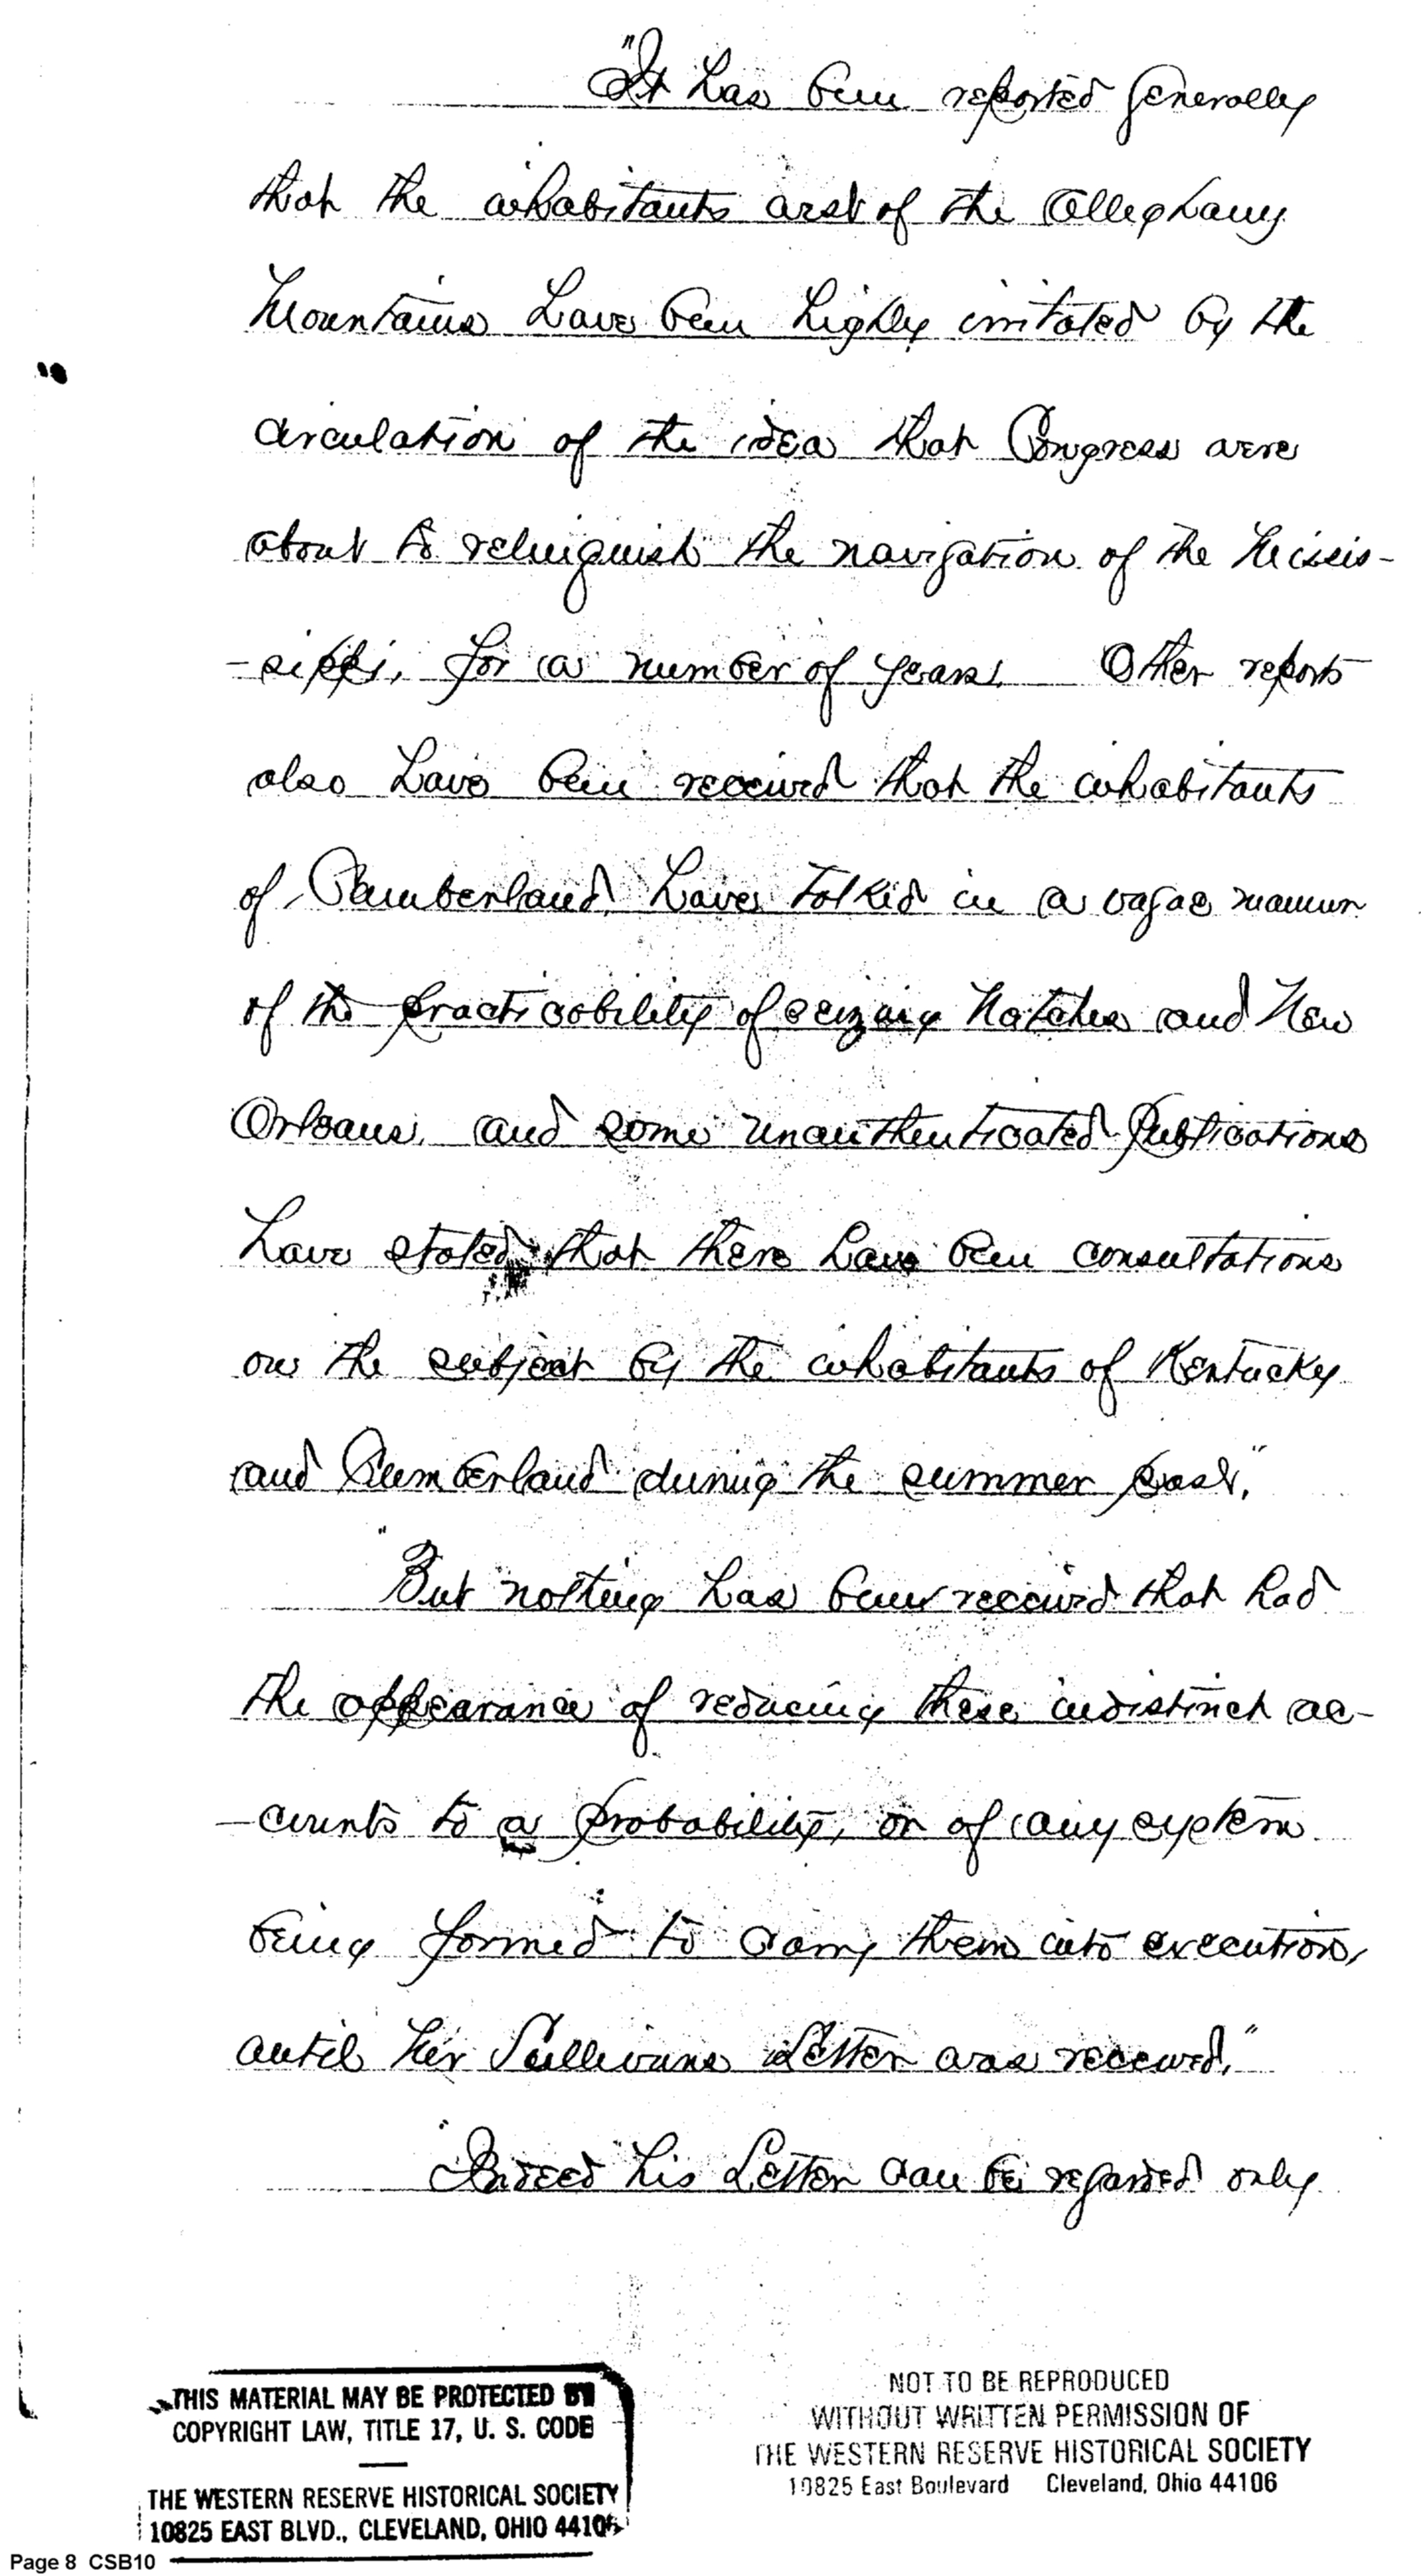 "It has been reported generally
that the inhabitants west of the Alleghany
Mountains have been highly irritated by the
circulation of the idea that Congress were
about to relinquish the navigation of the Missis-
-sippi, for a number of years. Other reports
also have been received that the inhabitants
of Cumberland, have talked in a vague manner
of the practicability of seizing Natches and New
Orleans, and some unauthenticated publications
have stated that there have been consultations
on the subject by the inhabitants of Kentucky
and Cumberland during the summer past,"
"But nothing has been received that had
the appearance of reducing these indistinct ac-
-counts to a probability, or of any system
being formed to carry them into execution,
until Mr Sullivans Letter was received,"
"Indeed his Letter can be regarded only
THIS MATERIAL MAY BE PROTECTED BY
COPYRIGHT LAW, TITLE 17, U. S. CODE
THE WESTERN RESERVE HISTORICAL SOCIETY
10825 EAST BLVD., CLEVELAND, OHIO 44106
NOT TO BE REPRODUCED
WITHOUT WRITTEN PERMISSION OF
THE WESTERN RESERVE HISTORICAL SOCIETY
10825 East Boulevard Cleveland, Ohio 44106
Page 8 CSB10